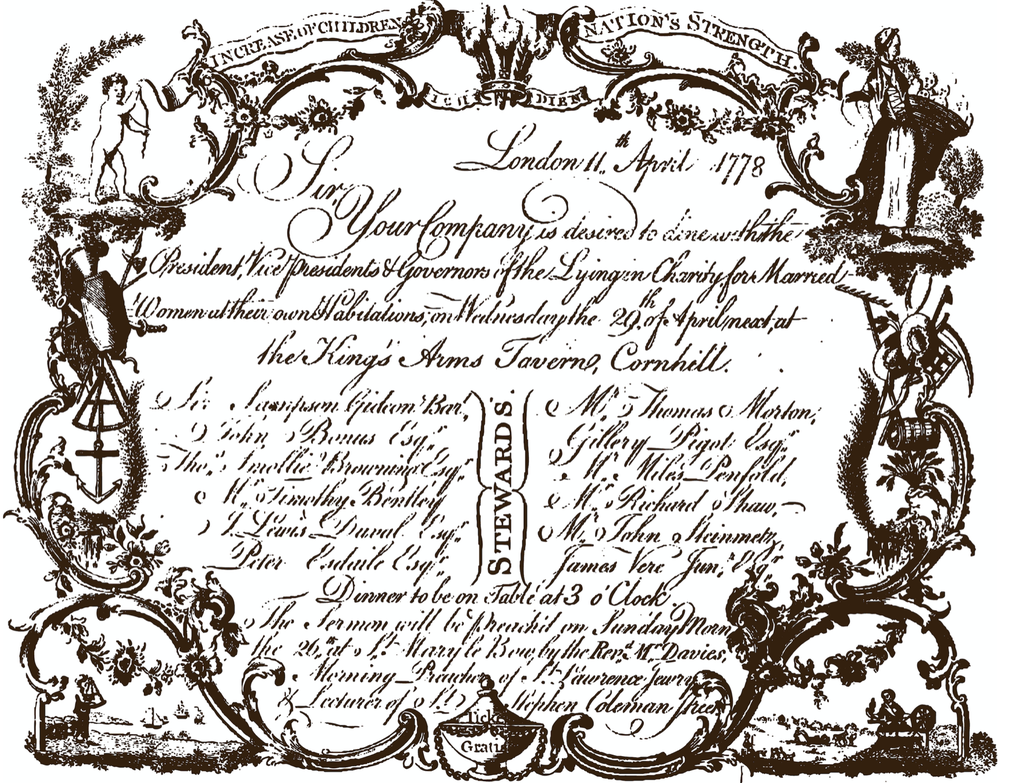 INCREASE OF CHILDREN
NATION'S STRENGTH.
ICH DIEN
London 11th April 1778
Sir,
Your Company is desired to dine with the
President, Vice Presidents & Governors of the Lying in Charity for Married
Women at their own Habitations, on Wednesday the 29th of April next, at
the King's Arms Tavern, Cornhill.
Sir Sampson Gideon Bart,
John Bonus Esqr.
Thos. Smollie Browning Esqr.
Mr. Timothy Bentley
J. Lewis Duval Esqr.
Peter Esdaile Esqr.
STEWARDS.
Mr. Thomas Morton,
Gillery Pigot Esqr.
Mr. Miles Penfold,
Mr. Richard Shaw,
Mr. John Steinmetz,
James Vere Junr. Esqr.
Dinner to be on Table at 3 o'Clock
The Sermon will be preach'd on Sunday Morn
the 26th at St. Mary le Bow, by the Revd. Mr. Davies,
Morning Preacher of St. Lawrence Jewry
& Lecturer of St. Stephen Coleman Street
Ticket
Gratis